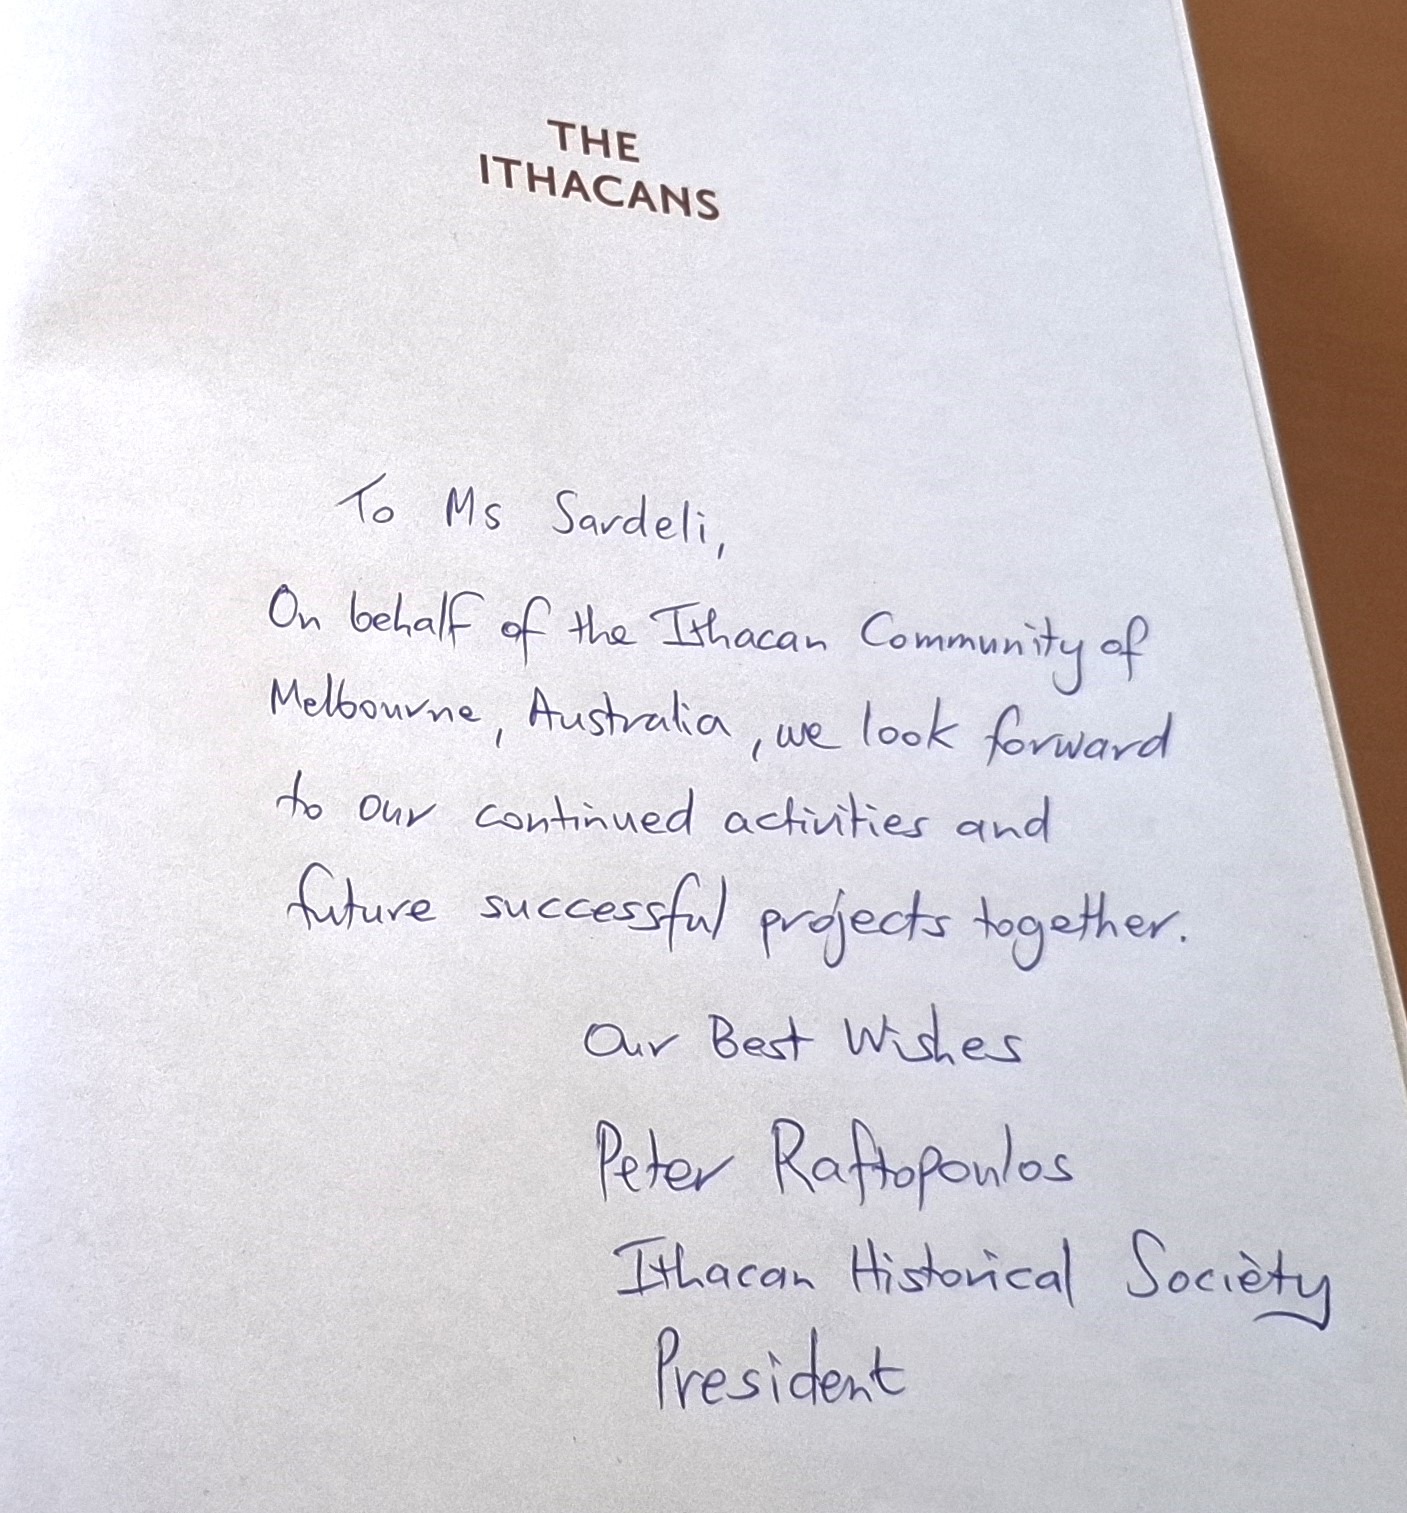 THE
ITHACANS
To Ms Sardeli,
On behalf of the Ithacan Community of
Melbourne, Australia, we look forward
to our continued activities and
future successful projects together.
Our Best Wishes
Peter Raftopoulos
Ithacan Historical Society
President